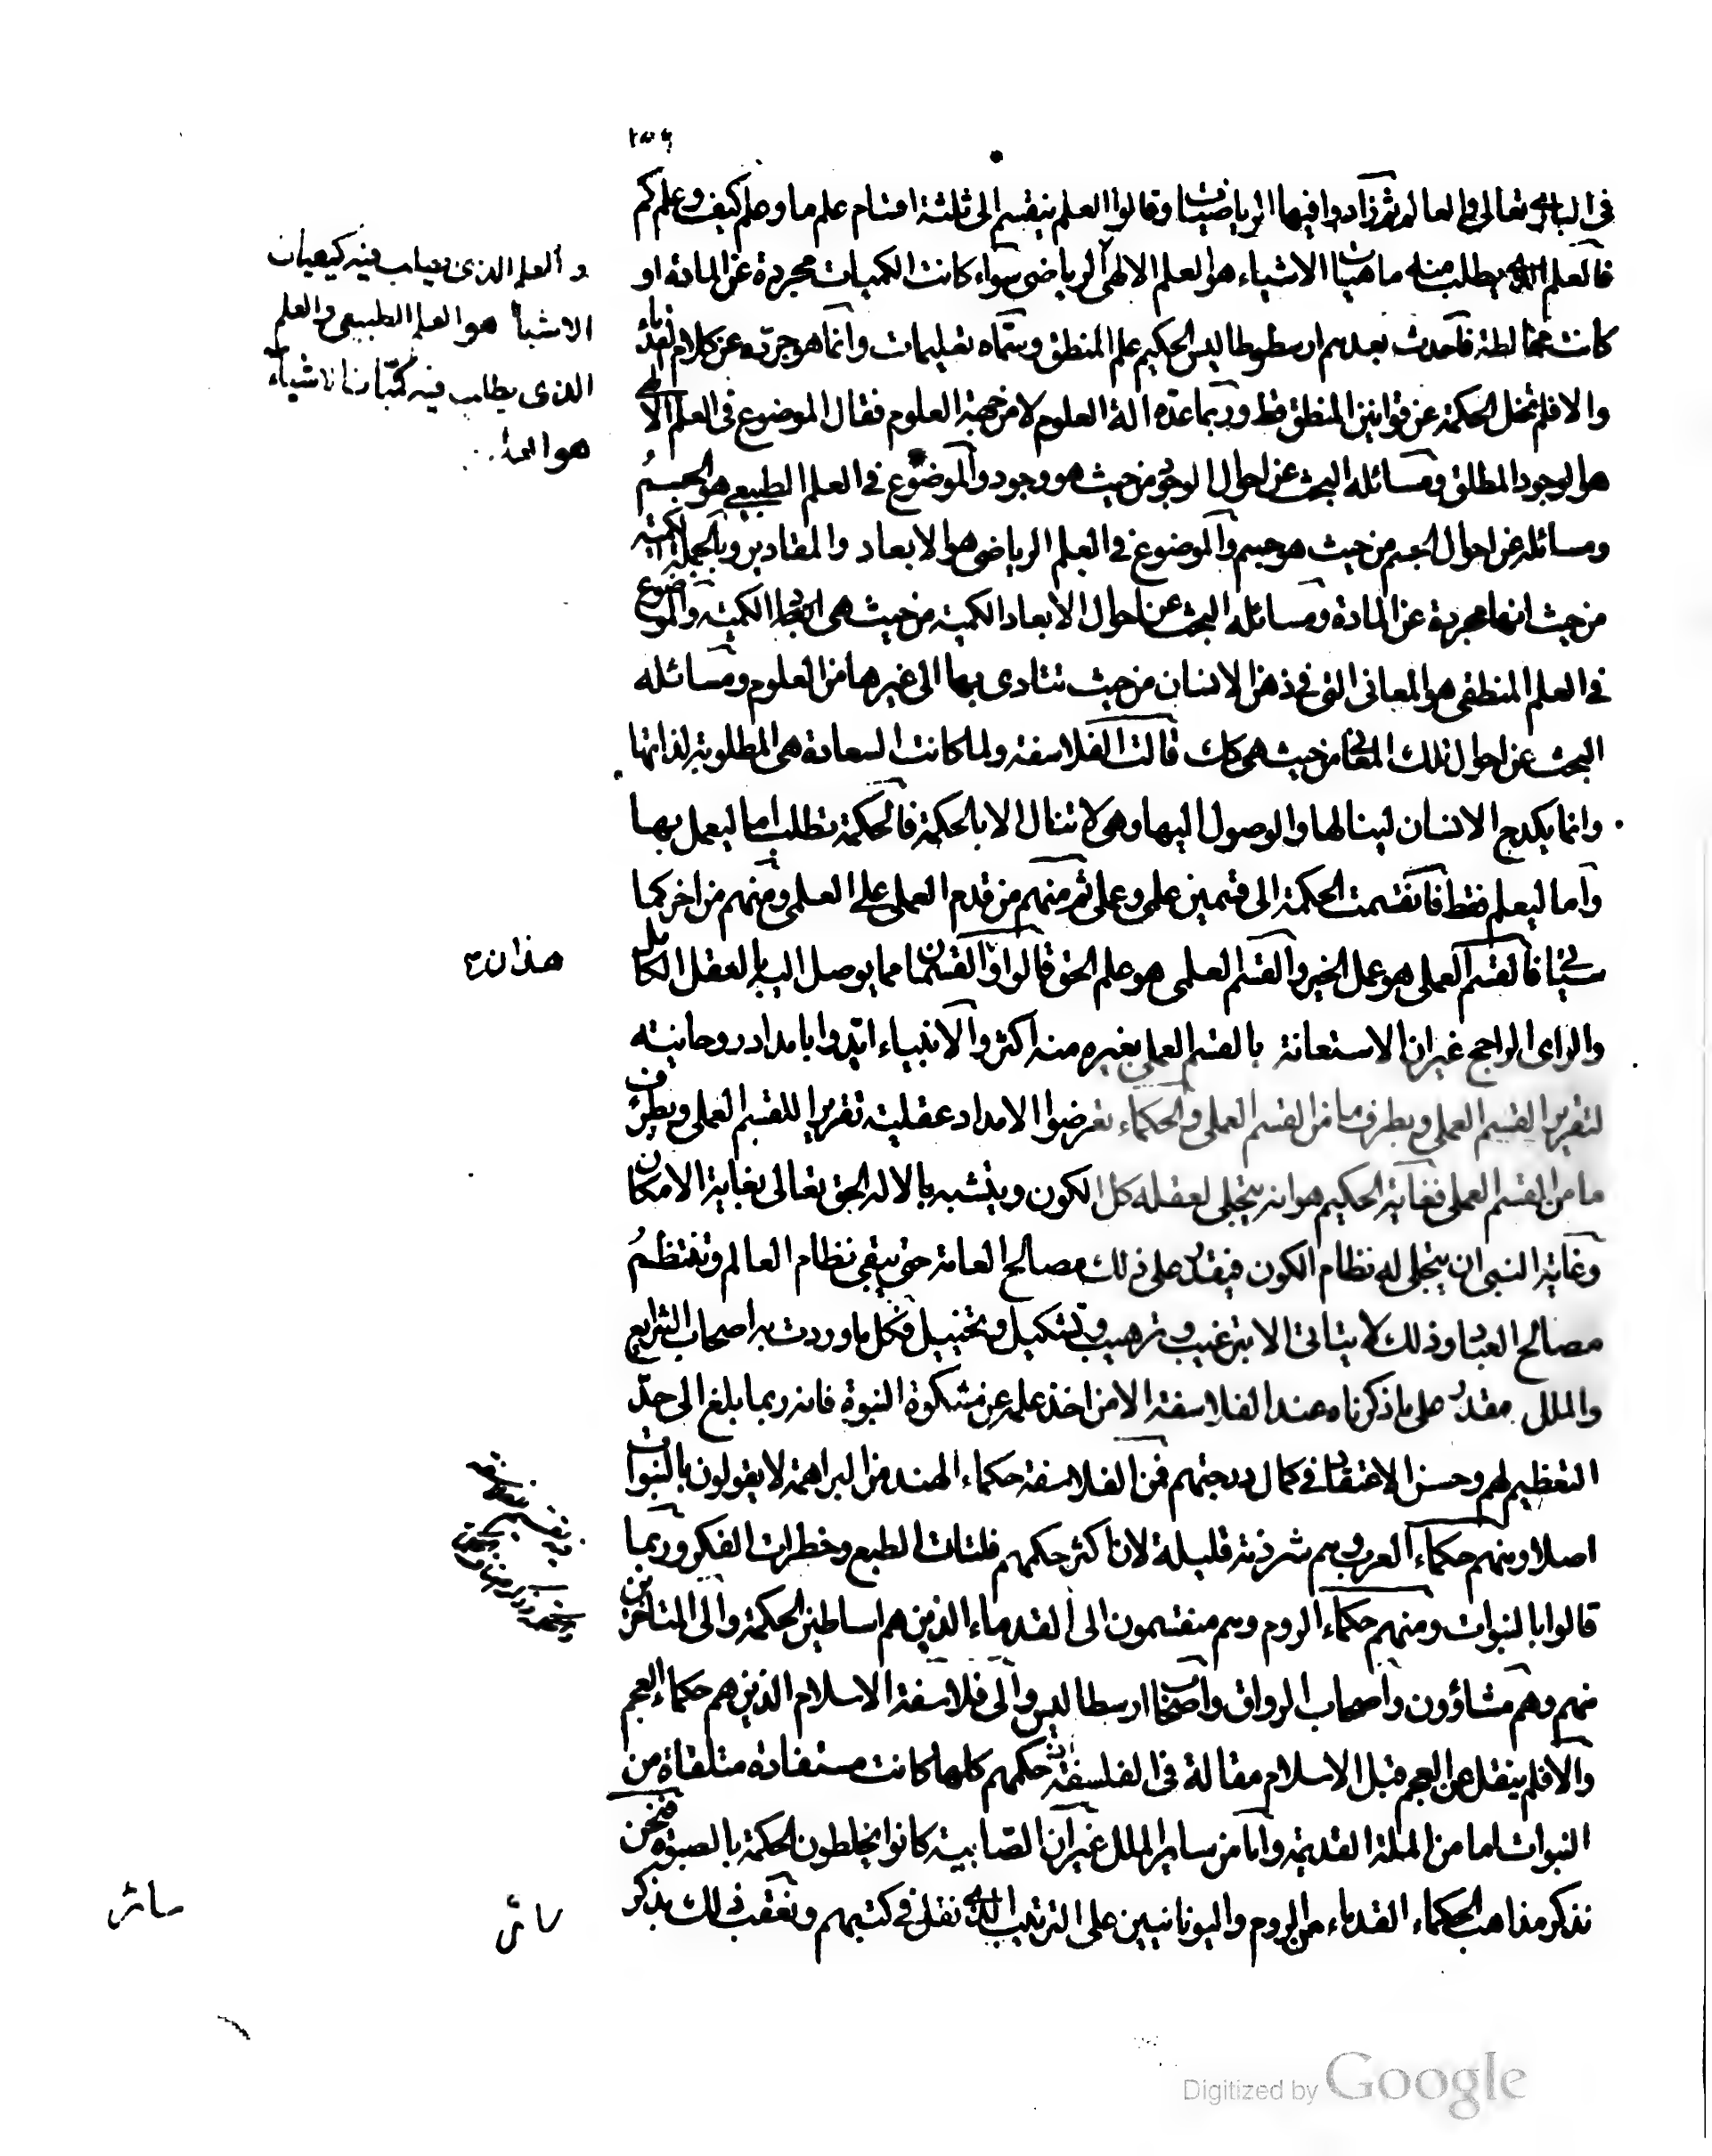 في الباري تعالى والعالم ثم زادوا فيها الرياضيات وقالوا العلم ينقسم الى ثلثة اقسام علم ما وعلم كيف وعلم كم
فالعلم الذي يطلب منه ماهيات الاشياء هو العلم الالهي الرياضي سواء كانت الكميات مجردة عن المادة او
كانت مخالطة فاحدث بعدهم ارسطوطاليس الحكيم علم المنطق وسماه تعليمات وانما هو جرده عن كلام القدماء
والا فلم تخل الحكمة عن قوانين المنطق قط وربما عده الة العلوم لا من جهة العلوم فقال الموضوع في العلم الالهي
هو الوجود المطلق ومسائله البحث عن احوال الوجود من حيث هو وجود والموضوع في العلم الطبيعي هو الجسمُ
ومسائله عن احوال الجسم من حيث هو جسم والموضوع في العلم الرياضي هو الابعاد والمقادير وبالجملة الكمية
من حيث انها مجردة عن المادة ومسائله البحث عن احوال الابعاد الكمية من حيث هي الكمية والموضوع
في العلم المنطقي هو المعاني التي في ذهن الانسان من حيث تتادى بها الى غيرها من العلوم ومسائله
البحث عن احوال تلك المعاني من حيث هي كذلك قالت الفلاسفة ولما كانت السعادة هي المطلوبة لذاتها
وانما يكدح الانسان لينالها والوصول اليها وهي لا تنال الا بالحكمة فالحكمة تطلب اما ليعمل بها
واما ليعلم فقط فانقسمت الحكمة الى قسمين علمي وعملي ثم منهم من قدم العملي على العلمي ومنهم من اخر كما
سيأتي فالقسم العملي هو عمل الخير والقسم العلمي هو علم الحق قالوا والقسمان مما يوصل اليه بالعقل الكامل
والراي الراجح غير ان الاستعانة بالقسم العملي بغيره منه اكثر والانبياء ايدوا بامداد روحانية
لتقرير القسم العملي وبطرف ما من القسم العملي والحكماء تعرضوا لامداد عقلية تقريرا للقسم العملي وبطرف
ما من القسم العملي فغاية الحكيم هو ان يتجلى لعقله كل الكون ويتشبه بالاله الحق تعالى بغاية الامكان
وغاية النبي ان يتجلى له نظام الكون فيقدر على ذلك مصالح العامة حتى يبقى نظام العالم وتنتظمُ
مصالح العباد وذلك لا يتاتى الا بترغيب وترهيب وتشكيل وتخييل فكل ما وردت به اصحاب الشرايع
والملل مقدر على ما ذكرناه عند الفلاسفة الا من اخذ علمه عن مشكوة النبوة فانه ربما بلغ الى حدّ
التعظيم لهم وحسن الاعتقاد في كمال درجتهم فمن الفلاسفة حكماء الهند من البراهمة لا يقولون بالنبوات
اصلا ومنهم حكماء العرب وهم شرذمة قليلة لان اكثر حكمهم فلتات الطبع وخطرات الفكر وربما
قالوا بالنبوات ومنهم حكماء الروم وهم منقسمون الى القدماء الذين هم اساطين الحكمة والى المتاخرين
منهم وهم مشاؤون واصحاب الرواق واصحاب ارسطاليس والى فلاسفة الاسلام الذين هم حكماء العجم
والا فلم ينقل عن العجم قبل الاسلام مقالة في الفلسفة حكمهم كلها كانت مستفادة متلقاة من
النبوات اما من الملة القديمة واما من ساير الملل غير ان الصابية كانوا يخلطون الحكمة بالصبوة فنحن
نذكر مذاهب الحكماء القدماء من الروم واليونانيين على الترتيب الذي نقل في كتبهم ونعقب ذلك بذكر
سائر
سائر
والعلم الذي يطلب فيه كيفيات
الاشيا هو العلم الطبيعي والعلم
الذي يطلب فيه كميات الاشياء
هو العلم
هذا ن
Digitized by Google